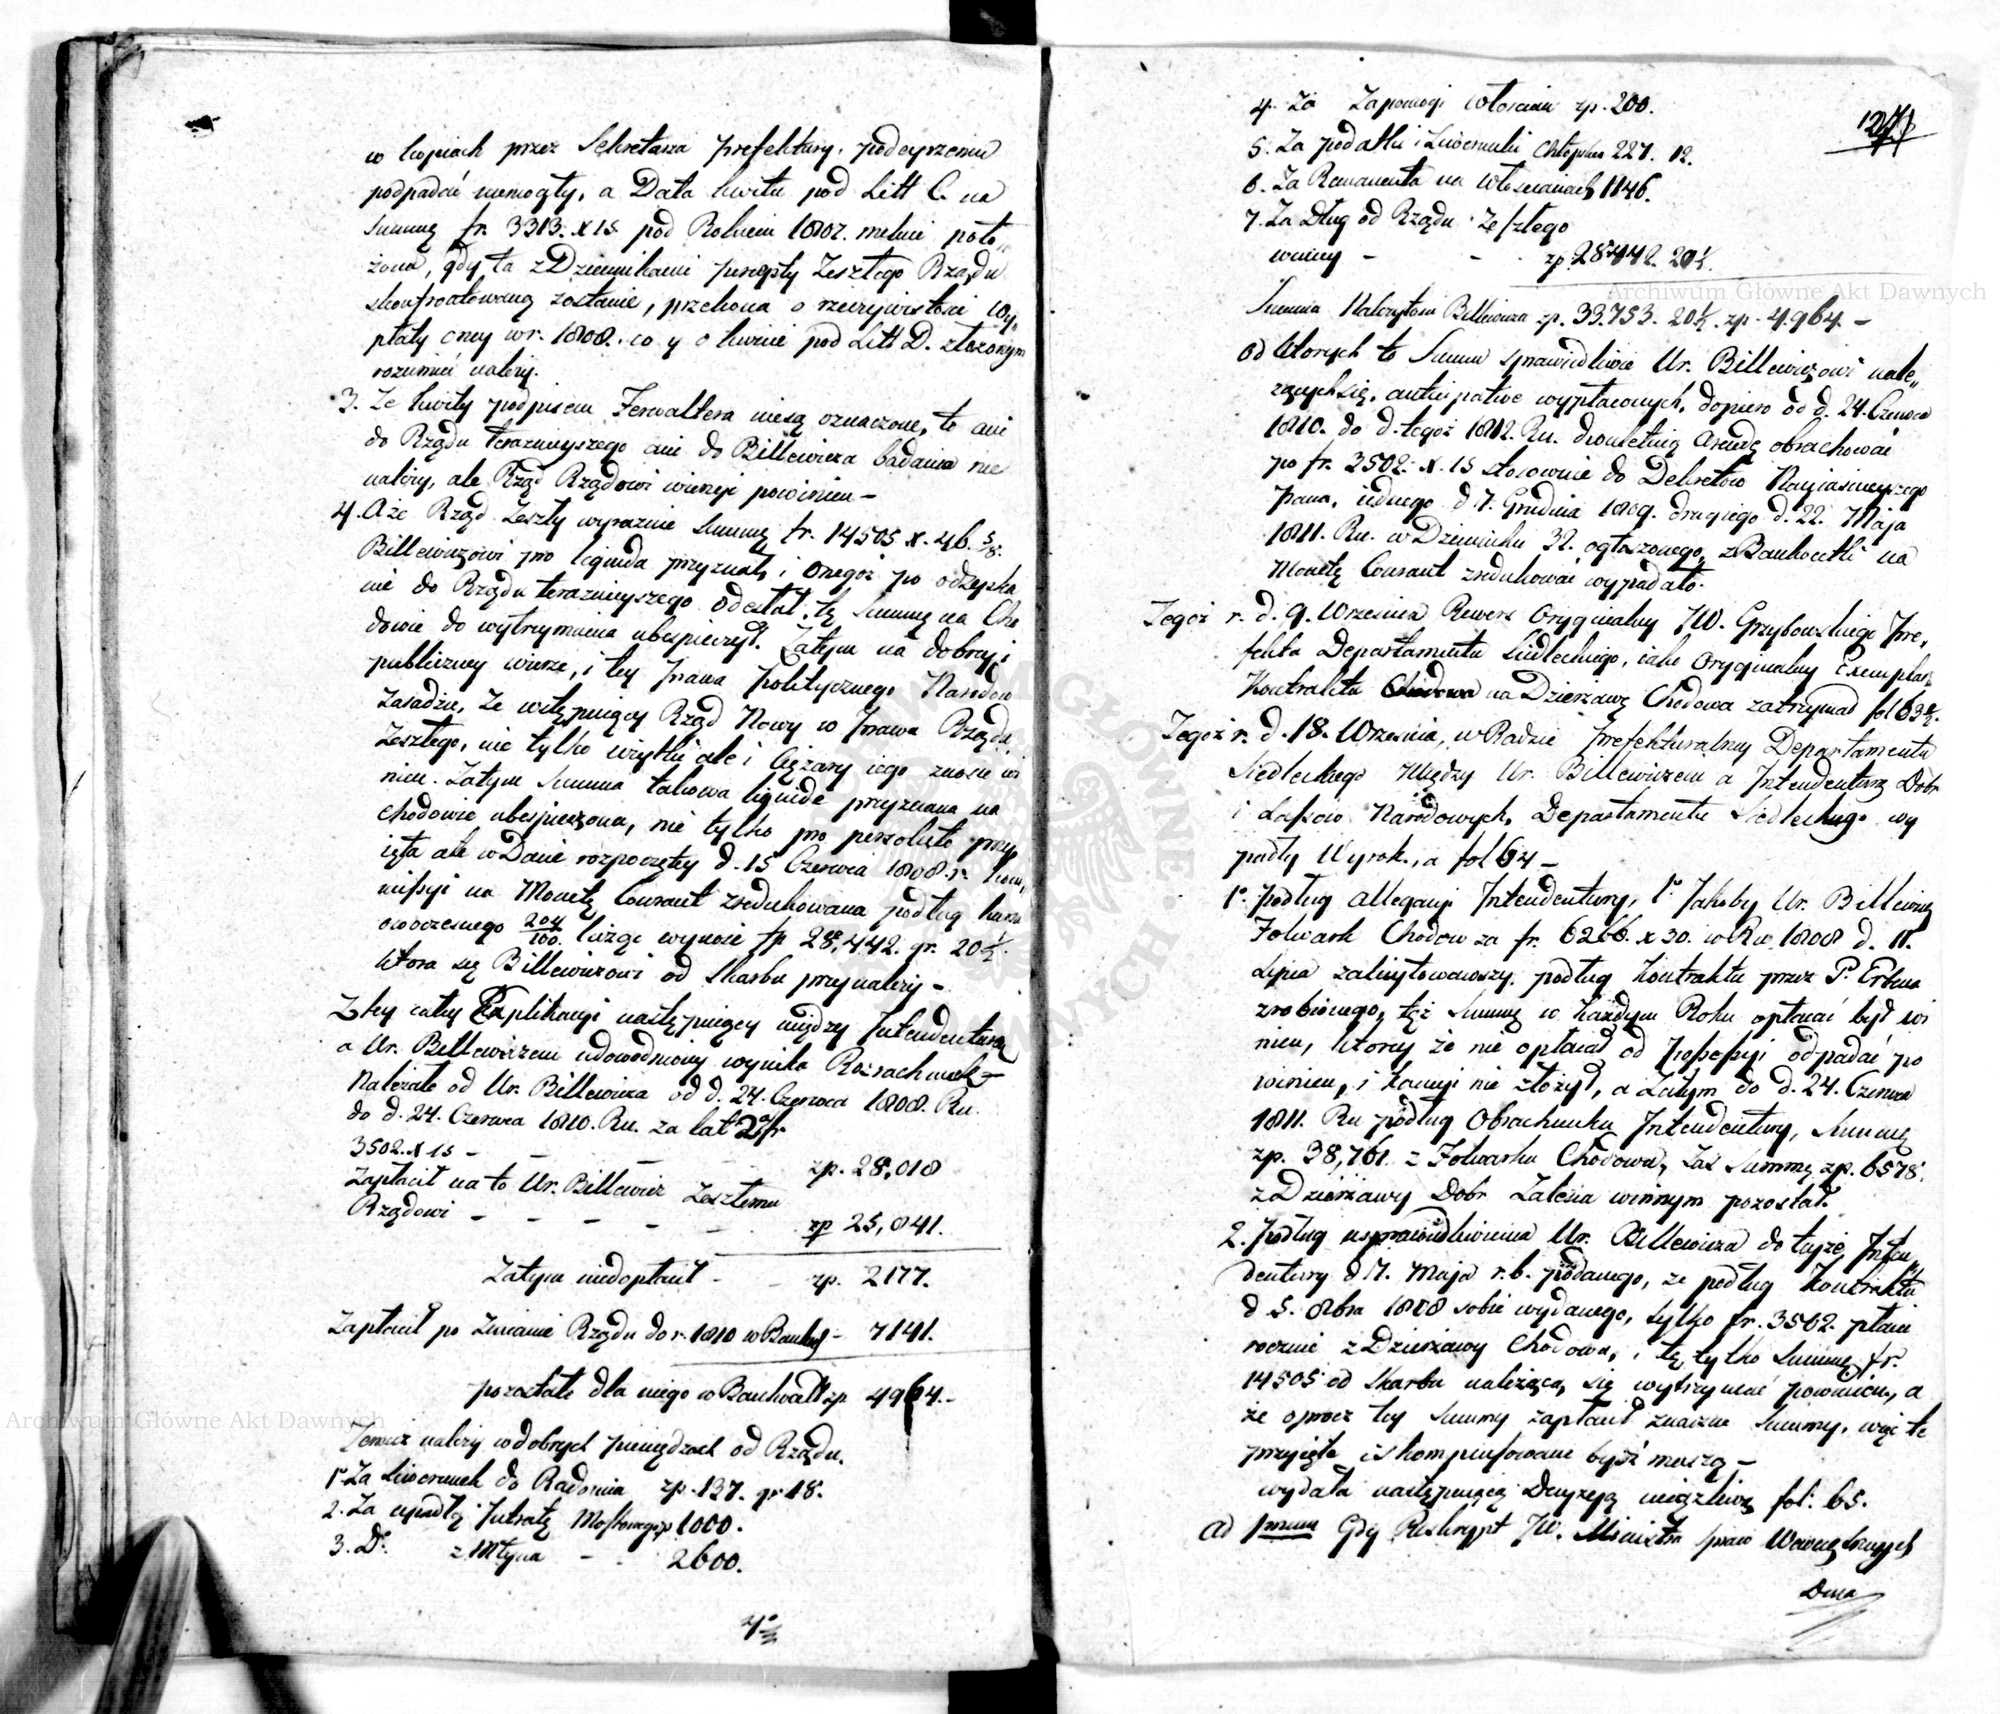 w kopiach przez Sekretarza Prefektury, podeyrzeniu
podpadać niemogły, a Data kwitu pod Litt C. na
Summę fr. 3313. x 15 pod Rokiem 1807. mylnie poło„
żona, gdy ta z Dziennikami percepty Zeszłego Rządu
skonfrontowaną zostanie, przekona o rzeczywistości wy„
płaty oney w r. 1808. co y o kwicie pod Litt D. złożonym
rozumieć należy.
3. Że kwity podpisem Ferwaltera niesą oznaczone, to ani
do Rządu teraznieyszego ani do Billewicza badania nie
należy, ale Rząd Rządowi wierzyć powinien –
4. A że Rząd Zeszły wyraznie Summę fr. 14505 x. 46 5/8.
Billewiczowi pro liquida przyznał, i onegoż po odzyska
nie do Rządu teraznieyszego odesłał, tę Summę na Cho
dowie do wytrzymania ubespieczył. Zatym na dobrey i
publiczney wierze, i tey Prawa Politycznego Narodow
Zasadzie, że wstępuiący Rząd Nowy w Prawa Rządu
Zeszłego, nie tylko użytki ale i Ciężary iego znosić wi
nien. Zatym Summa takowa liquide przyznana na
Chodowie ubespieczona, nie tylko pro persoluto przy
ięta ale w Dacie rozpoczętey d. 15 Czerwca 1808. r. kom„
missyi na Monetę Courant zredukowana podług kursu
owoczesnego 204/100. licząc wynosi fp 28,442. gr. 20 1/2.
ktora się Billewiczowi od Skarbu przynależy –
Z tey całey Explikacyi następuiący między Intendenturą
a Ur. Billewiczem udowodniony wynika Rozrachunek –
Należało od Ur. Billewicza od d. 24. Czerwca 1808. Ru.
do d. 24. Czerwca 1810. Ru. za lat 2 fr
3502. x 15 – – – – zp. 28,018
Zapłacił na to Ur. Billewicz Zeszłemu
Rządowi – – – – – zp 25,841.
Zatym niedopłacił – – zp. 2177.
Zapłacił po Zmianie Rządu do r. 1810 w Bankoc. – 7141.
pozostało dla niego w Bankocetl. zp. 4964. –
Teraz należy w dobrych pieniądzach od Rządu.
1° Za Liwerunek do Radomia zp. 137. gr. 18.
2. Za upadłą Intratę Mostowego 1000.
3. Do. z Młyna – – 2600.
4°
1277
4. Za Zapomogi Włoscian zp. 200.
5. Za podatki i Liwerunki Chłopskie 227. 12.
6. Za Remanenta na Włoscianach 1146.
7. Za Dług od Rządu Zeszłego
winny – – zp. 28442. 20 1/2.
Summa Należytosci Billewicza zp. 33,753. 20 1/2. zp. 4,964. –
Od ktorych to Summ sprawiedliwie Ur. Billewiczowi nale„
zących się, anticipative wypłaconych, dopiero od d. 24. Czerwca
1810. do d. tegoż 1812. Ru. dwuletnią Arendę obrachować
po fr. 3502. x. 15 stosownie do Dekretow Nayiasnieyszego
Pana, iednego d 7. Grudnia 1809. drugiego d. 22. Maja
1811. Ru. w Dzienniku 32. ogłoszonego, z Bankocetli na
Monetę Courant zredukować wypadało.
Tegoż r. d. 9. Wrzesnia Rewers Oryginalny JW. Grzybowskiego Pre„
fekta Departamentu Siedleckiego, iako Oryginalny Exemplarz
Kontraktu na Dzierżawę Chodowa zatrzymał fol 63 1/2.
Tegoż r. d. 18. Wrzesnia, w Radzie Prefekturalney Departamentu
Siedleckiego Między Ur. Billewiczem a Intendenturą Dobr
i Lasow Narodowych, Departamentu Siedleckiego wy
padły Wyrok, a fol 64 –
1°. Podług allegacyi Intendentury, 1° Jakoby Ur. Billewicz
Folwark Chodow za fr. 6266. x 30. w Ru 1808 d. 11.
Lipca zalicytowawszy, podług Kontraktu przez P. Erbna
zrobionego, też Summę w każdym Roku opłacać był wi
nien, ktorey że nie opłacał od possessyi odpadać po
winien, i kaucyi nie złożył, a Zatym do d. 24. Czerwca
1811. Ru podług Obrachunku Intendentury, Summę
zp. 38,761. z Folwarku Chodowa, zaś Summę zp. 6578.
z Dzierżawy Dobr Zalesia winnym pozostał.
2. Podług usprawiedliwienia Ur. Billewicza do teyże Inten„
dentury d 7. Maja r. b. podanego, że podług Kontraktu
d 5. 8bra 1808 sobie wydanego, tylko fr. 3502. płacić
rocznie z Dzierżawy Chodowa, i tę tylko Summę fr.
14505 od Skarbu należącą się wytrzymać powinien, a
że oprocz tey Summy zapłacił znaczne Summy, więc te
przyięte i skompensowane być muszą –
wydała następuiącą Decyzyą fol. 65.
Ad 1mum Gdy Reskrypt JW. Ministra spraw Wewnętrznych
Dnia